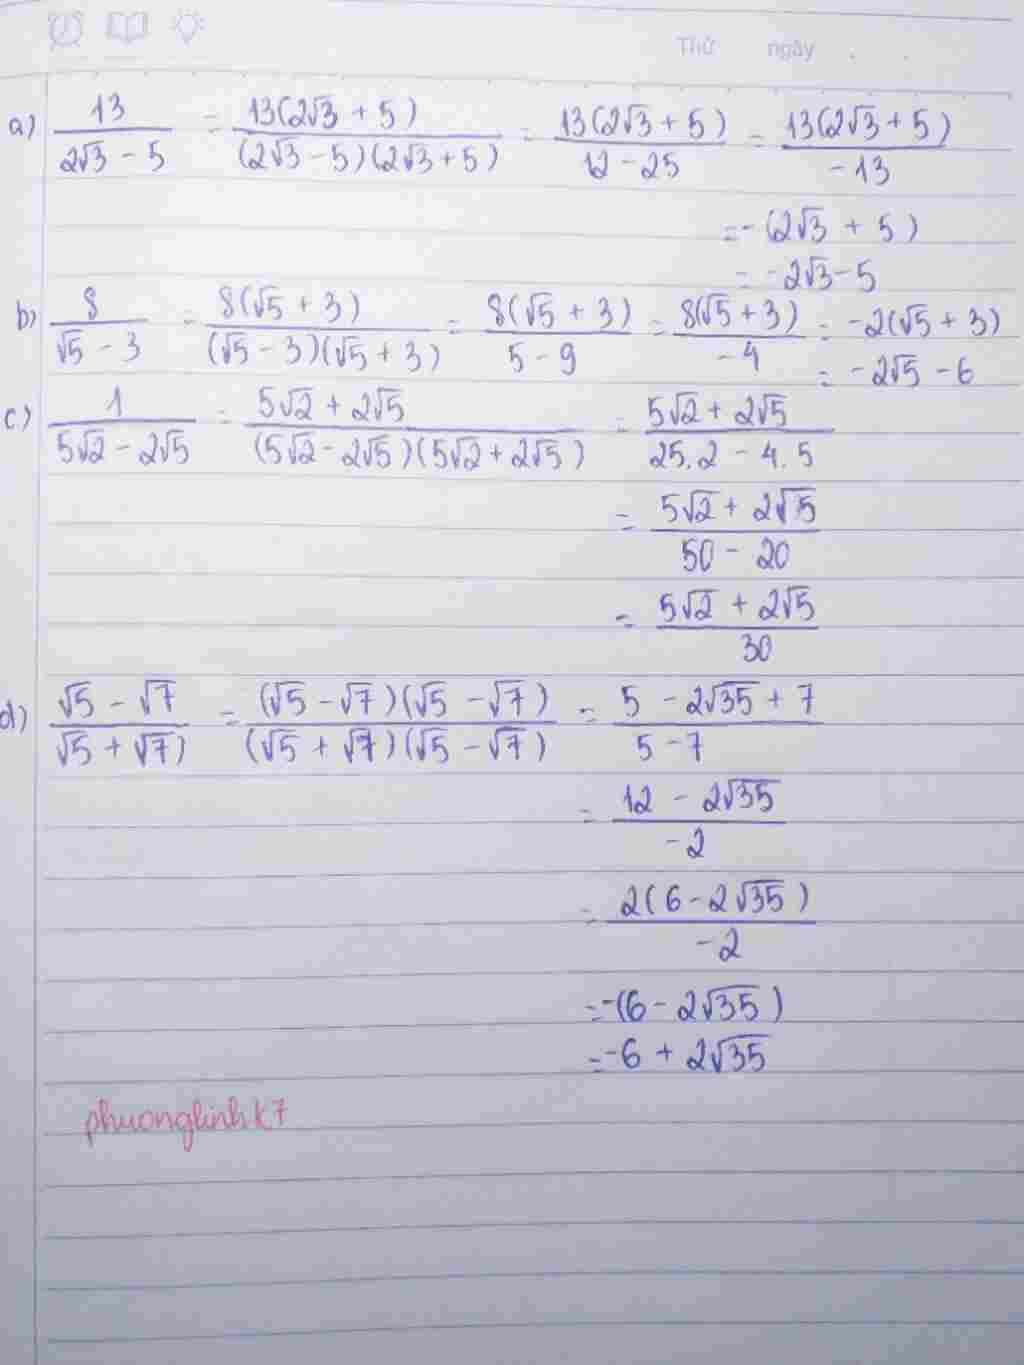 Thứ ngày
a) 13/(2√3 - 5) = 13(2√3 + 5)/((2√3 - 5)(2√3 + 5)) = 13(2√3 + 5)/(12 - 25) = 13(2√3 + 5)/(-13)
= -(2√3 + 5)
= -2√3 - 5
b) 8/(√5 - 3) = 8(√5 + 3)/((√5 - 3)(√5 + 3)) = 8(√5 + 3)/(5 - 9) = 8(√5 + 3)/(-4) = -2(√5 + 3)
= -2√5 - 6
c) 1/(5√2 - 2√5) = (5√2 + 2√5)/((5√2 - 2√5)(5√2 + 2√5)) = (5√2 + 2√5)/(25.2 - 4.5)
= (5√2 + 2√5)/(50 - 20)
= (5√2 + 2√5)/30
d) (√5 - √7)/(√5 + √7) = (√5 - √7)(√5 - √7)/((√5 + √7)(√5 - √7)) = (5 - 2√35 + 7)/(5 - 7)
= (12 - 2√35)/(-2)
= 2(6 - 2√35)/(-2)
= -(6 - 2√35)
= -6 + 2√35
phuonglinhk7